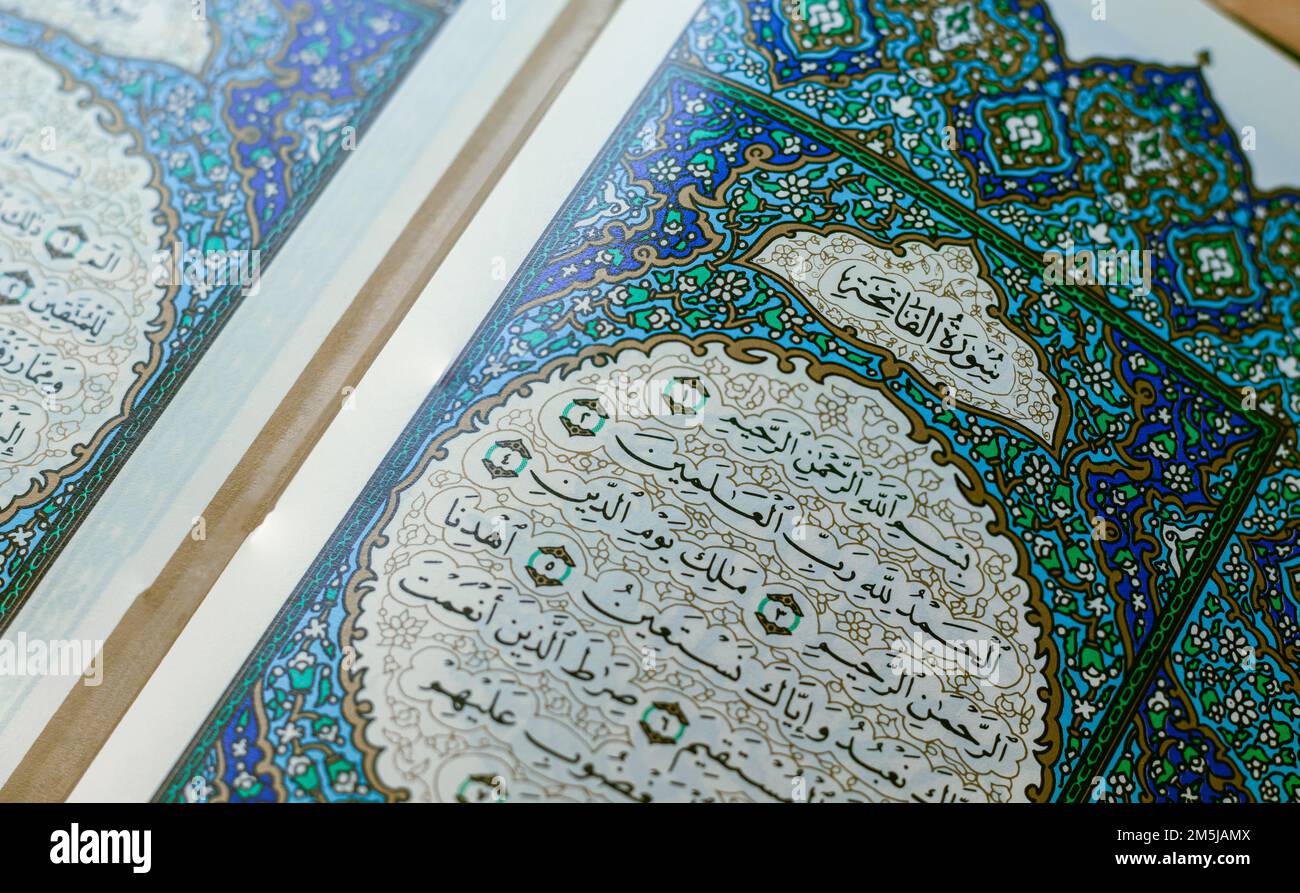 سُورَةُ ٱلْفَاتِحَةِ
بِسْمِ ٱللَّهِ ٱلرَّحْمَٰنِ ٱلرَّحِيمِ ١
ٱلْحَمْدُ لِلَّهِ رَبِّ ٱلْعَٰلَمِينَ ٢
ٱلرَّحْمَٰنِ ٱلرَّحِيمِ ٣ مَٰلِكِ يَوْمِ ٱلدِّينِ ٤
نَعْبُدُ وَإِيَّاكَ نَسْتَعِينُ ٥ ٱهْدِنَا
ٱلْمُسْتَقِيمَ ٦ صِرَٰطَ ٱلَّذِينَ أَنْعَمْتَ
عَلَيْهِمْ
الٓمٓ ١ ذَٰلِكَ
لِّلْمُتَّقِينَ ٢
alamy
Image ID: 2M5JAMX
www.alamy.com